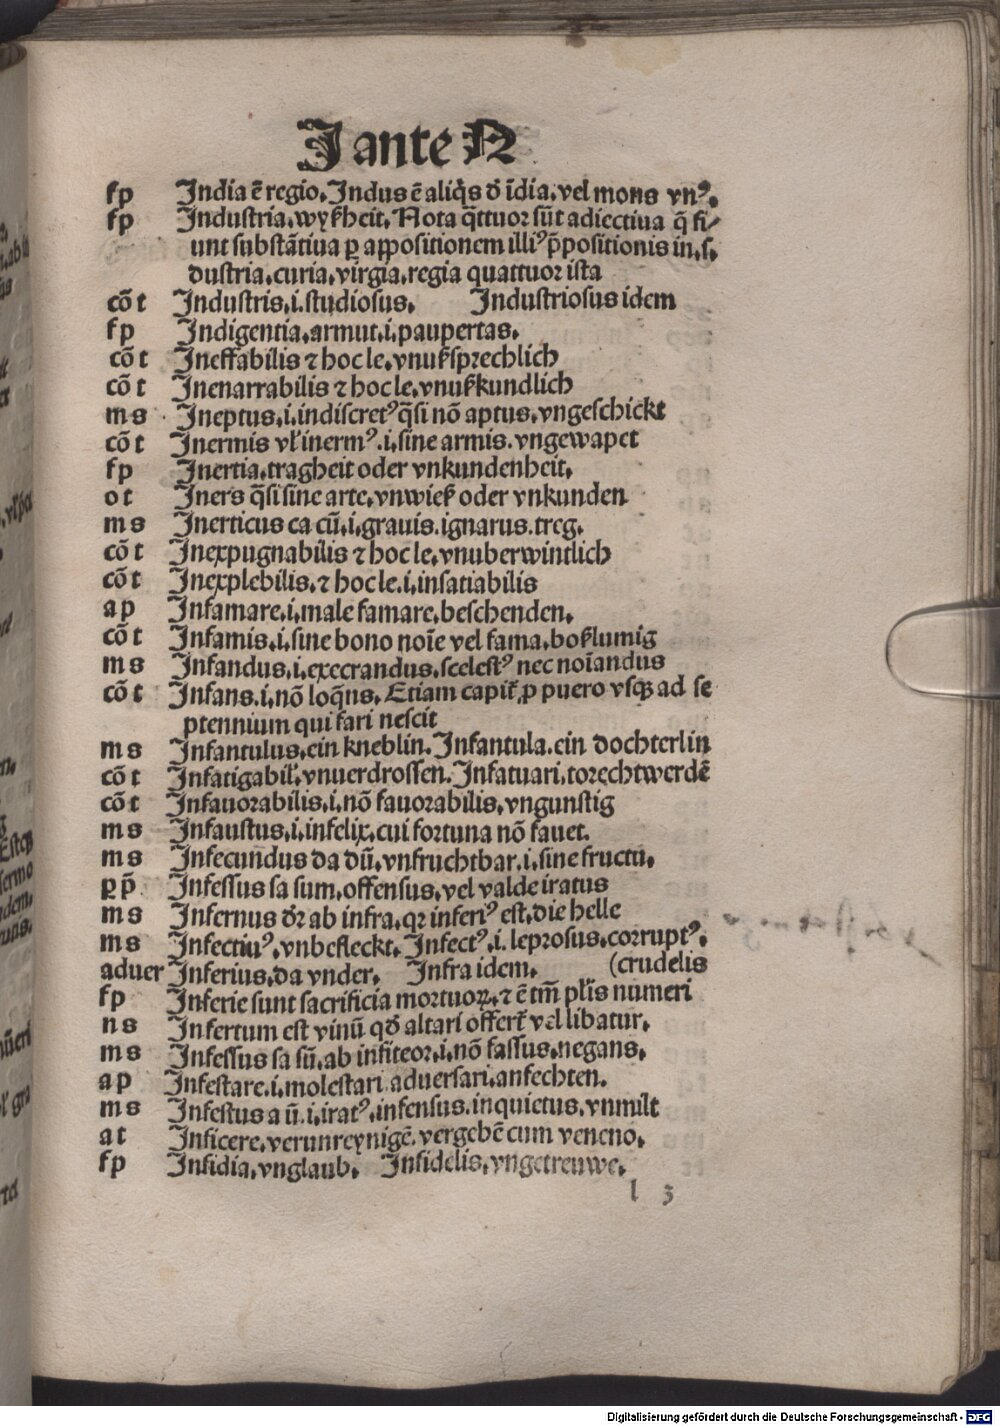 I ante N
fp India ē regio. Indus ē aliq̄s d' īdia. vel mons vnꝰ.
fp Industria. wyſzheit. Nota q̄ttuor sūt adiectiua q̄ fi/
unt substātiua ꝑ appositionem illiꝰ p̄positionis in. s.
dustria. curia. virgia. regia quattuor ista
cō t Industris. i. studiosus. Industriosus idem
fp Indigentia. armut. i. paupertas.
cō t Ineffabilis ⁊ hoc le. vnuſzsprechlich
cō t Inenarrabilis ⁊ hoc le. vnuſzkundlich
m s Ineptus. i. indiscretꝰ q̄si nō aptus. vngeschickt
cō t Inermis vl' inermꝰ. i. sine armis. vngewapet
fp Inertia. tragheit oder vnkundenheit.
o t Iners q̄si sine arte. vnwieſz oder vnkunden
m s Inerticus ca cū. i. grauis. ignarus. treg.
cō t Inexpugnabilis ⁊ hoc le. vnuberwintlich
cō t Inexplebilis. ⁊ hoc le. i. insatiabilis
a p Infamare. i. male famare. beschenden.
cō t Infamis. i. sine bono noīe vel fama. boſzlumig
m s Infandus. i. execrandus. scelestꝰ nec noīandus
cō t Infans. i. nō loq̄ns. Etiam capit' ꝓ puero vsqꝫ ad se
ptennium qui fari nescit
m s Infantulus. ein kneblin. Infantula. ein dochterlin
cō t Infatigabil'. vnuerdrossen. Infatuari. torechtwerdē
cō t Infauorabilis. i. nō fauorabilis. vngunstig
m s Infaustus. i. infelix. cui fortuna nō fauet.
m s Infecundus da dū. vnfruchtbar. i. sine fructu.
ꝑ p̄ Infessus sa sum. offensus. vel valde iratus
m s Infernus d'r ab infra. qr inferiꝰ est. die helle
m s Infectiuꝰ. vnbefleckt. Infectꝰ. i. leprosus. corruptꝰ.
aduer Inferius. da vnder. Infra idem. (crudelis
fp Inferie sunt sacrificia mortuoꝝ. ⁊ ē tm̄ pl'is numeri
n s Infertum est vinū qd' altari offert' vel libatur.
m s Infessus sa sū. ab infiteor. i. nō fassus. negans.
a p Infestare. i. molestari adversari. anfechten.
m s Infestus a ū. i. iratꝰ. infensus. inquietus. vnmilt
a t Inficere. verunreynigē. vergebē cum veneno.
fp Infidia. vnglaub. Infidelis. vngetreuwe.
l 3
Digitalisierung gefördert durch die Deutsche Forschungsgemeinschaft - DFG